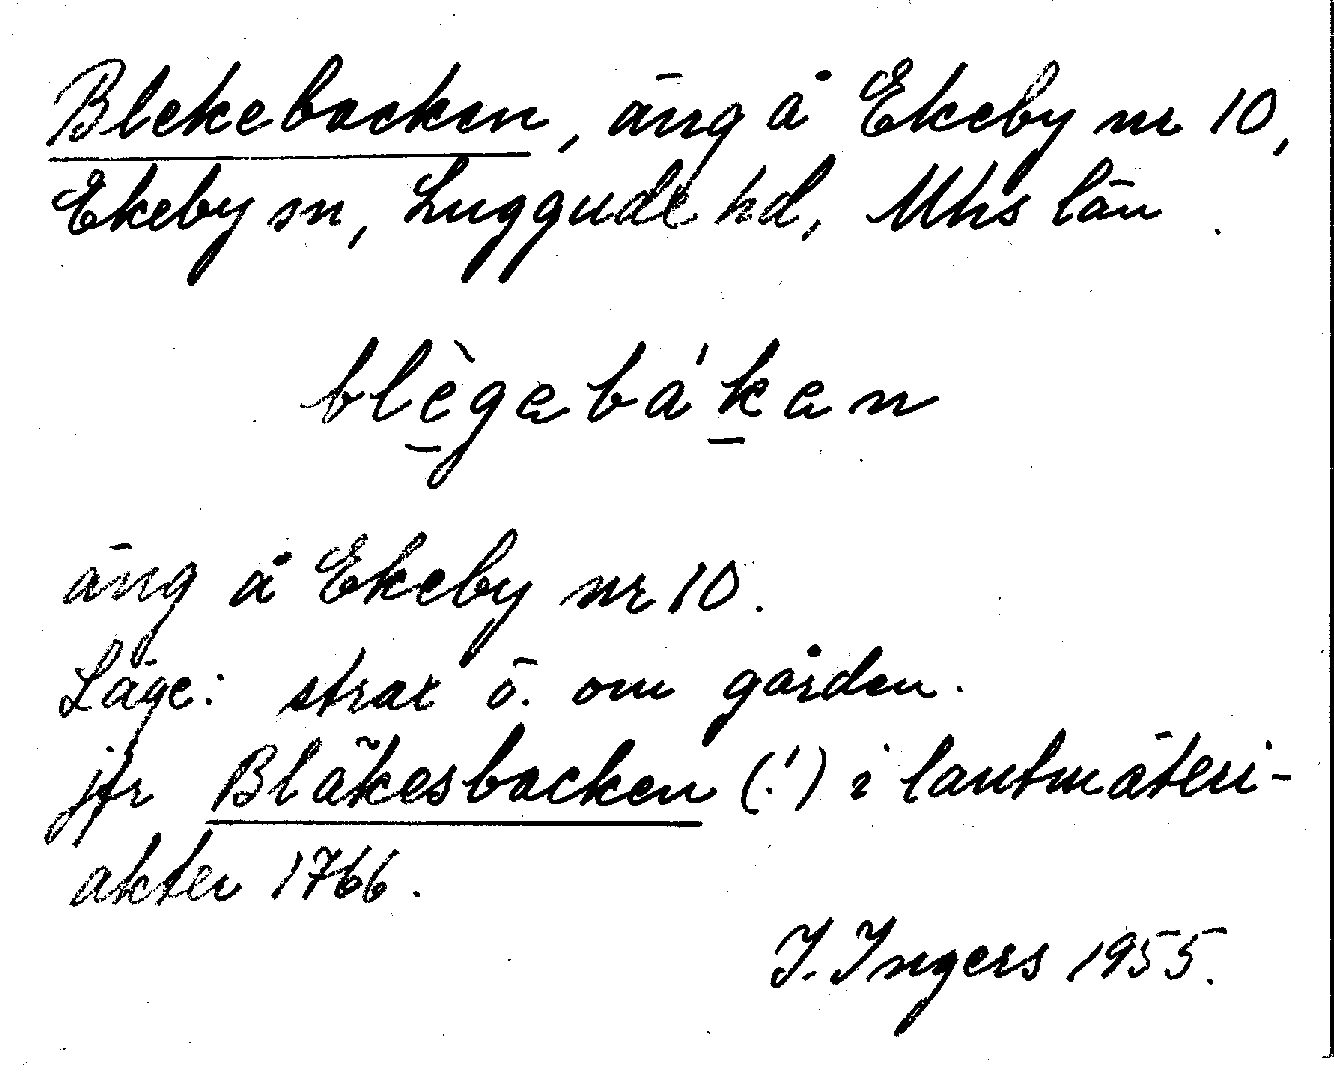 Blekebacken, äng å Ekeby nr 10,
Ekeby sn, Luggude hd, Mhs län.
blè̠gəbá'k̠ən
äng å Ekeby nr 10.
Läge: strax ö. om gården.
jfr Bläkesbacken (!) i lantmäteri-
akter 1766.
I. Ingers 1955.